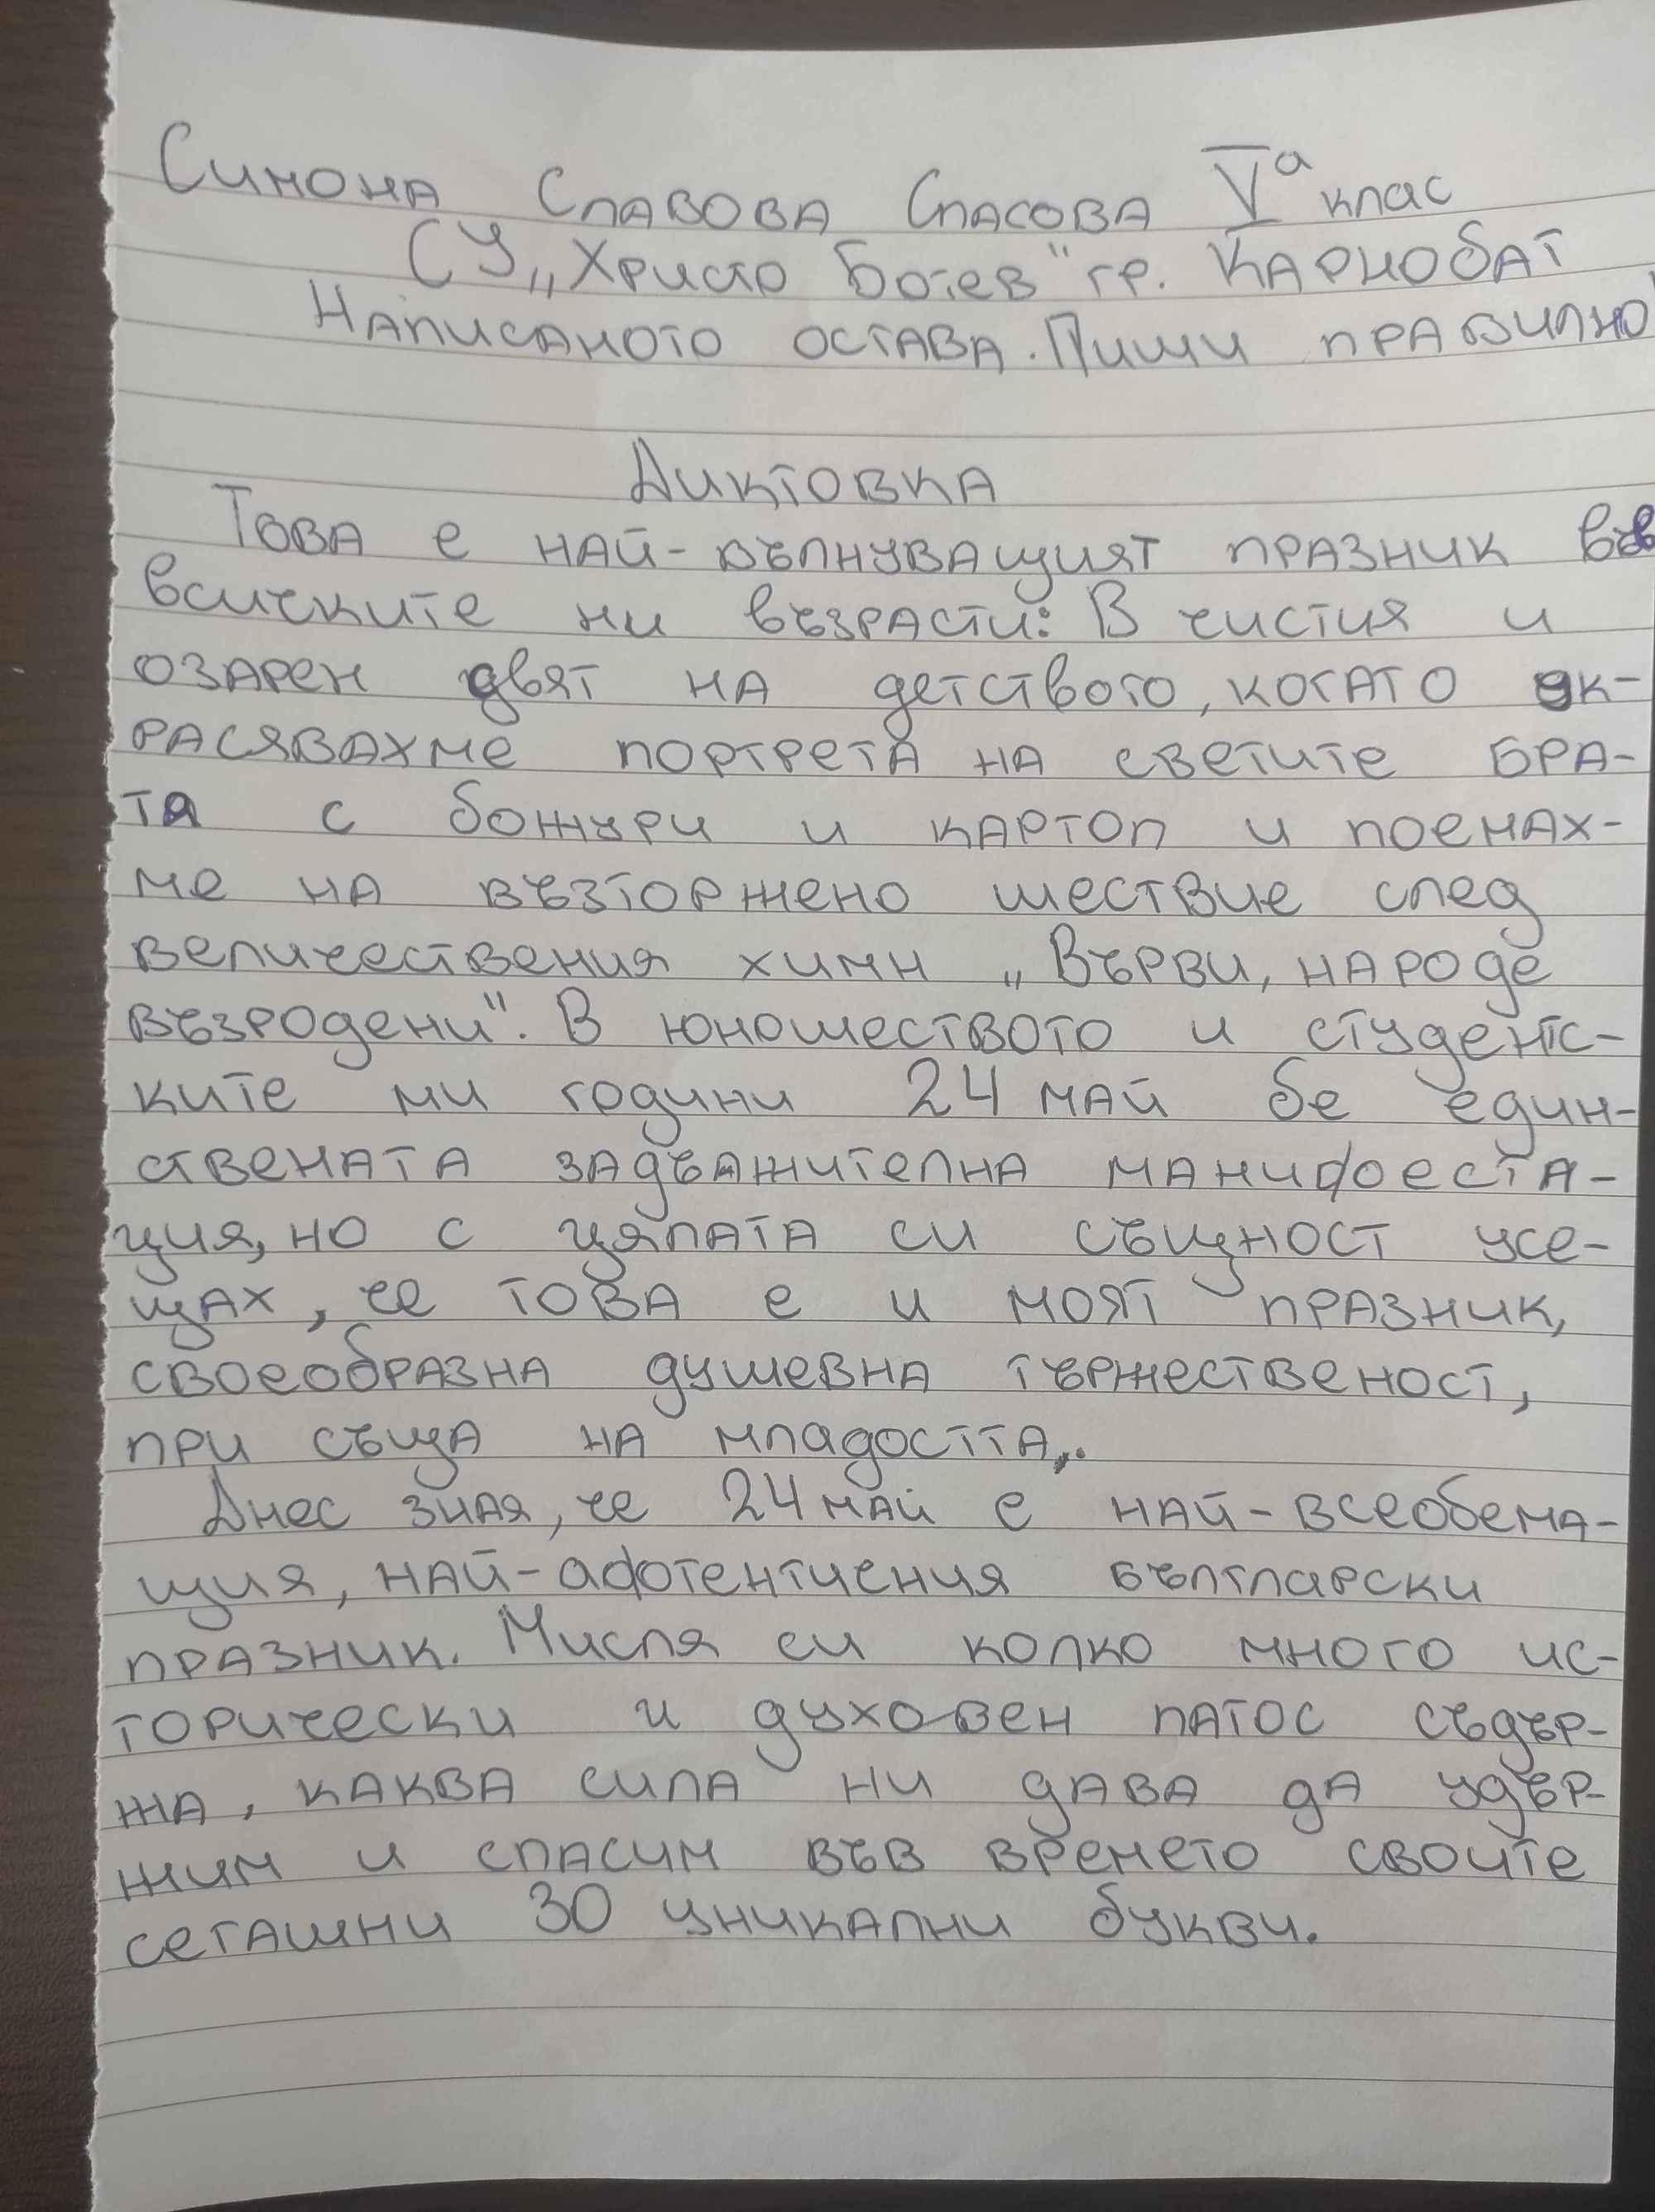 Симона Славова Спасова V а клас
СУ „Христо Ботев" гр. Карнобат
Написаното остава. Пиши правилно!
Диктовка
Това е най-вълнуващият празник във
всичките ни възрасти: В чистия и
озарен двят на детството, когато ук-
расявахме портрета на светите бра-
тя с божури и картоп и поемах-
ме на възторжено шествие след
величествения химн „Върви, народе
възродени". В юношеството и студентс-
ките ми години 24 май бе един-
ствената задължителна манифеста-
ция, но с цялата си същност усе-
щах, че това е и моят празник,
своеобразна душевна тържественост,
при съща на младостта.
Днес зная, че 24 май е най-всеобема-
щия, най-афотентичния български
празник. Мисля си колко много ис-
торически и духовен патос съдър-
жа, каква сила ни дава да удър-
жим и спасим във времето своите
сегашни 30 уникални букви.